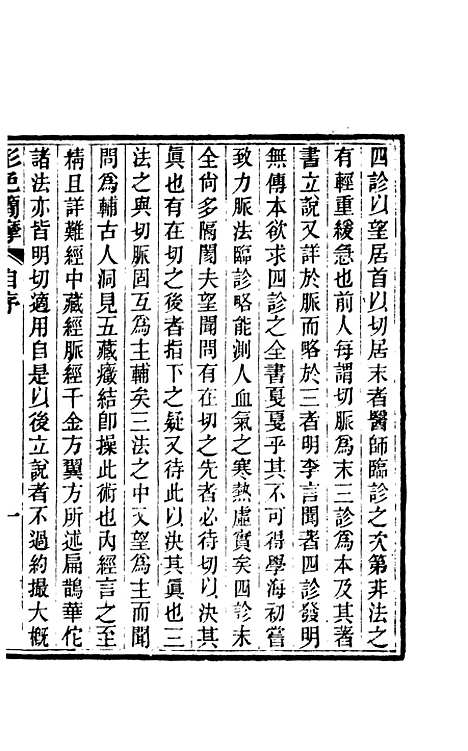 四診以望居首以切居末者醫師臨診之次第非法之
有輕重緩急也前人每謂切脈為末三診為本及其著
書立說又詳於脈而略於三者明李言聞著四診發明
無傳本欲求四診之全書戛戛乎其不可得學海初嘗
致力脈法臨診略能測人血氣之寒熱虛實矣四診未
全尙多隔閡夫望聞問有在切之先者必待切以決其
眞也有在切之後者指下之疑又待此以決其眞也三
法之與切脈固互為主輔矣三法之中又望為主而聞
問為輔古人洞見五藏癥結卽操此術也內經言之至
精且詳難經中藏經脈經千金方翼方所述扁鵲華佗
諸法亦皆明切適用自是以後立說者不過約撮大槪
形色簡摩 自序 一